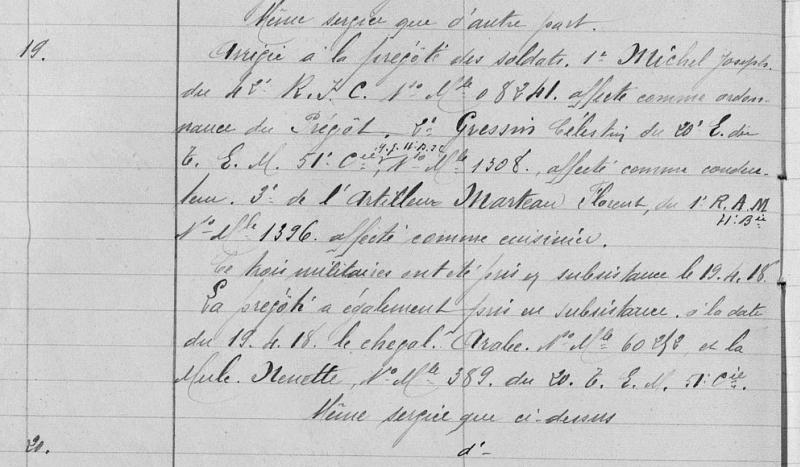 Même service que d'autre part.
19. Arrivée a la prévôté des soldats. 1º Michel Joseph.
du 42e R.I.C. No Mle 08241. affecté comme ordon-
nance du Prévôt. 2º Gressin Célestin du 20e E. du
T. E. M. 51e Cie, No Mle 1308. affecté comme conduc-
teur. 3º de l'Artilleur Marteau Florent, du 1e R.A.M
4e Bie
No Mle 1396. affecté comme cuisinier.
Ce trois militaires ont été pris en subsistance le 19.4.18.
La prévôté a également pris en subsistance. à la date
du 19.4.18. le cheval. Arabe. No Mle 60242 et la
Mule. Nenette, No Mle 389. du 20. T. E. M. 51e Cie.
Même service que ci-dessus
20. d°-